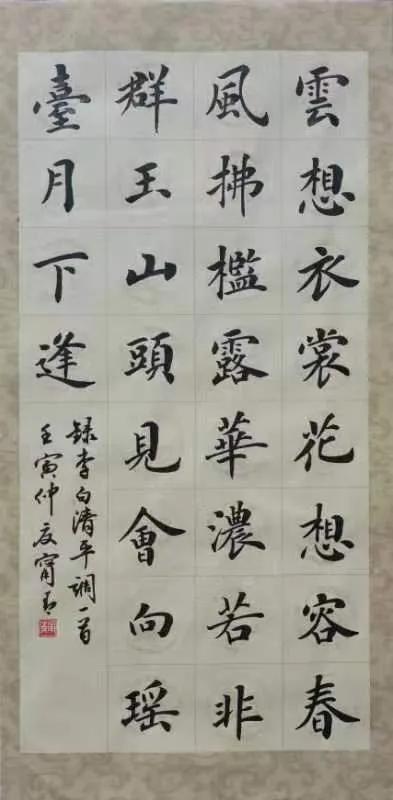 雲想衣裳花想容春
風拂檻露華濃若非
群玉山頭見會向瑶
臺月下逢
録李白清平調一首
壬寅仲夏甯